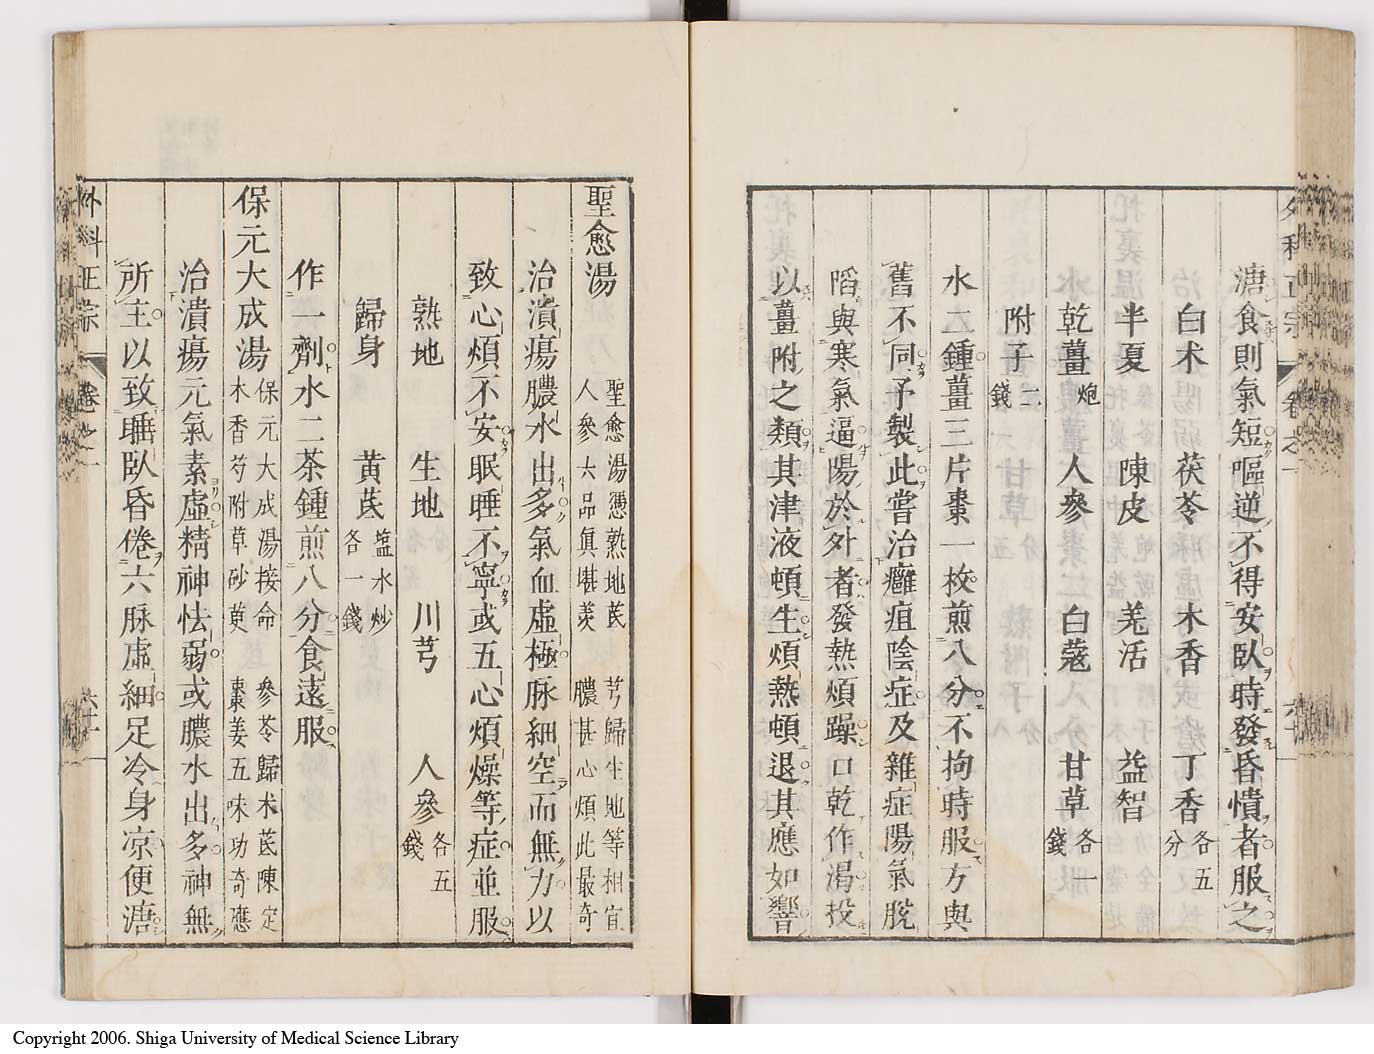 外科正宗 卷之一 六十
溏食則氣短嘔逆不得安臥時發昏憒者服之
白术 茯苓 木香 丁香各五分
半夏 陳皮 羌活 益智
乾薑炮 人參 白蔻 甘草各一錢
附子二錢
水二鍾薑三片棗一枚煎八分不拘時服方與
舊不同予製此嘗治癰疽陰症及雜症陽氣脫
陷與寒氣逼陽於外者發熱煩躁口乾作渴投
以薑附之類其津液頓生煩熱頓退其應如響
聖愈湯 聖愈湯憑熟地芪 芎歸生地等相宜 人參六品真堪羡 膿甚心煩此最奇
治潰瘍膿水出多氣血虛極脉細空而無力以
致心煩不安眠睡不寧或五心煩燥等症並服
熟地 生地 川芎 人參各五錢
歸身 黃芪塩水炒各一錢
作一劑水二茶鍾煎八分食遠服
保元大成湯 保元大成湯接命 參苓歸术芪陳定 木香芍附草砂萸 棗姜五味功奇應
治潰瘍元氣素虛精神怯弱或膿水出多神無
所主以致睡臥昏倦六脉虛細足冷身凉便溏
外科正宗 卷之一 六十一
Copyright 2006. Shiga University of Medical Science Library